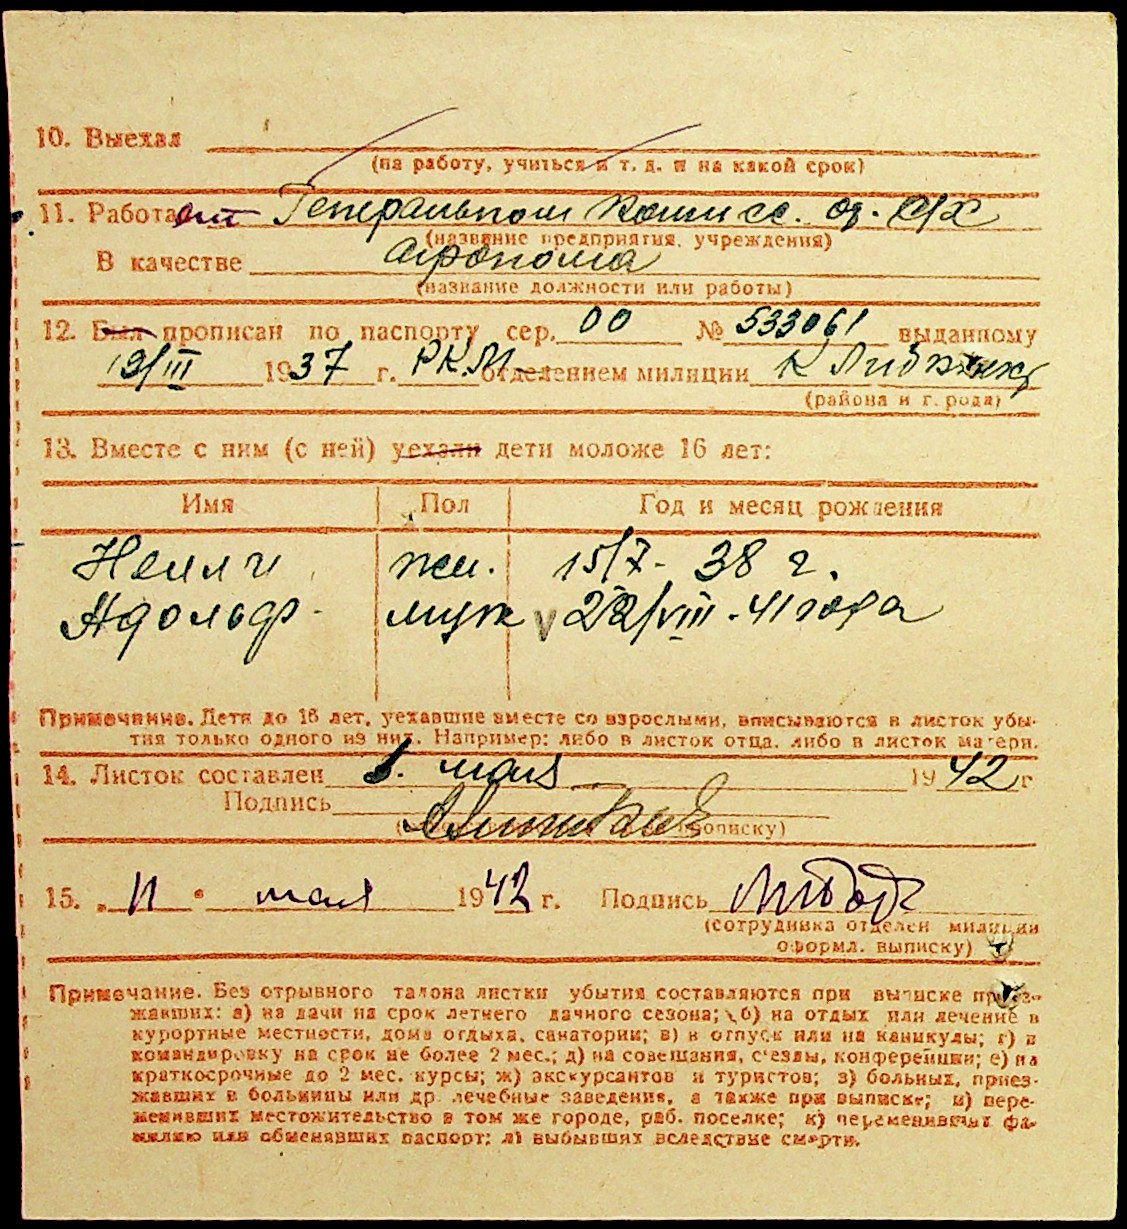 10. Выехал
(на работу, учиться и т. д. и на какой срок)
11. Работает Генеральном Комисс. од. С/Х
(название предприятия, учреждения)
В качестве агронома
(название должности или работы)
12. Был прописан по паспорту сер. 00 № 533061 выданному
19/III 1937 г. РК.М отделением милиции К Либкнехт
(района и города)
13. Вместе с ним (с ней) уехали дети моложе 16 лет:
Имя Пол Год и месяц рождения
Нелли жен. 15/7- 38 г.
Адольф- муж V 22/VIII - 41 года
Примечание. Дети до 16 лет, уехавшие вместе со взрослыми, вписываются в листок убы-
тия только одного из них. Например: либо в листок отца, либо в листок матери.
14. Листок составлен мая 1942 г
Подпись
прописку)
15. „11" мая 1942 г. Подпись
(сотрудника отделен милиции
оформл. выписку)
Примечание. Без отрывного талона листки убытия составляются при выписке приез-
жавших: а) на дачи на срок летнего дачного сезона; б) на отдых или лечение в
курортные местности, дома отдыха, санатории; в) в отпуск или на каникулы; г) в
командировку на срок не более 2 мес.; д) на совещания, с'езды, конференции; е) на
краткосрочные до 2 мес. курсы; ж) экскурсантов и туристов; з) больных, приез-
жавших в больницы или др. лечебные заведения, а также при выписке; и) пере-
менивших местожительство в том же городе, раб. поселке; к) переменивших фа-
милию или обменявших паспорт; л) выбывших вследствие смерти.